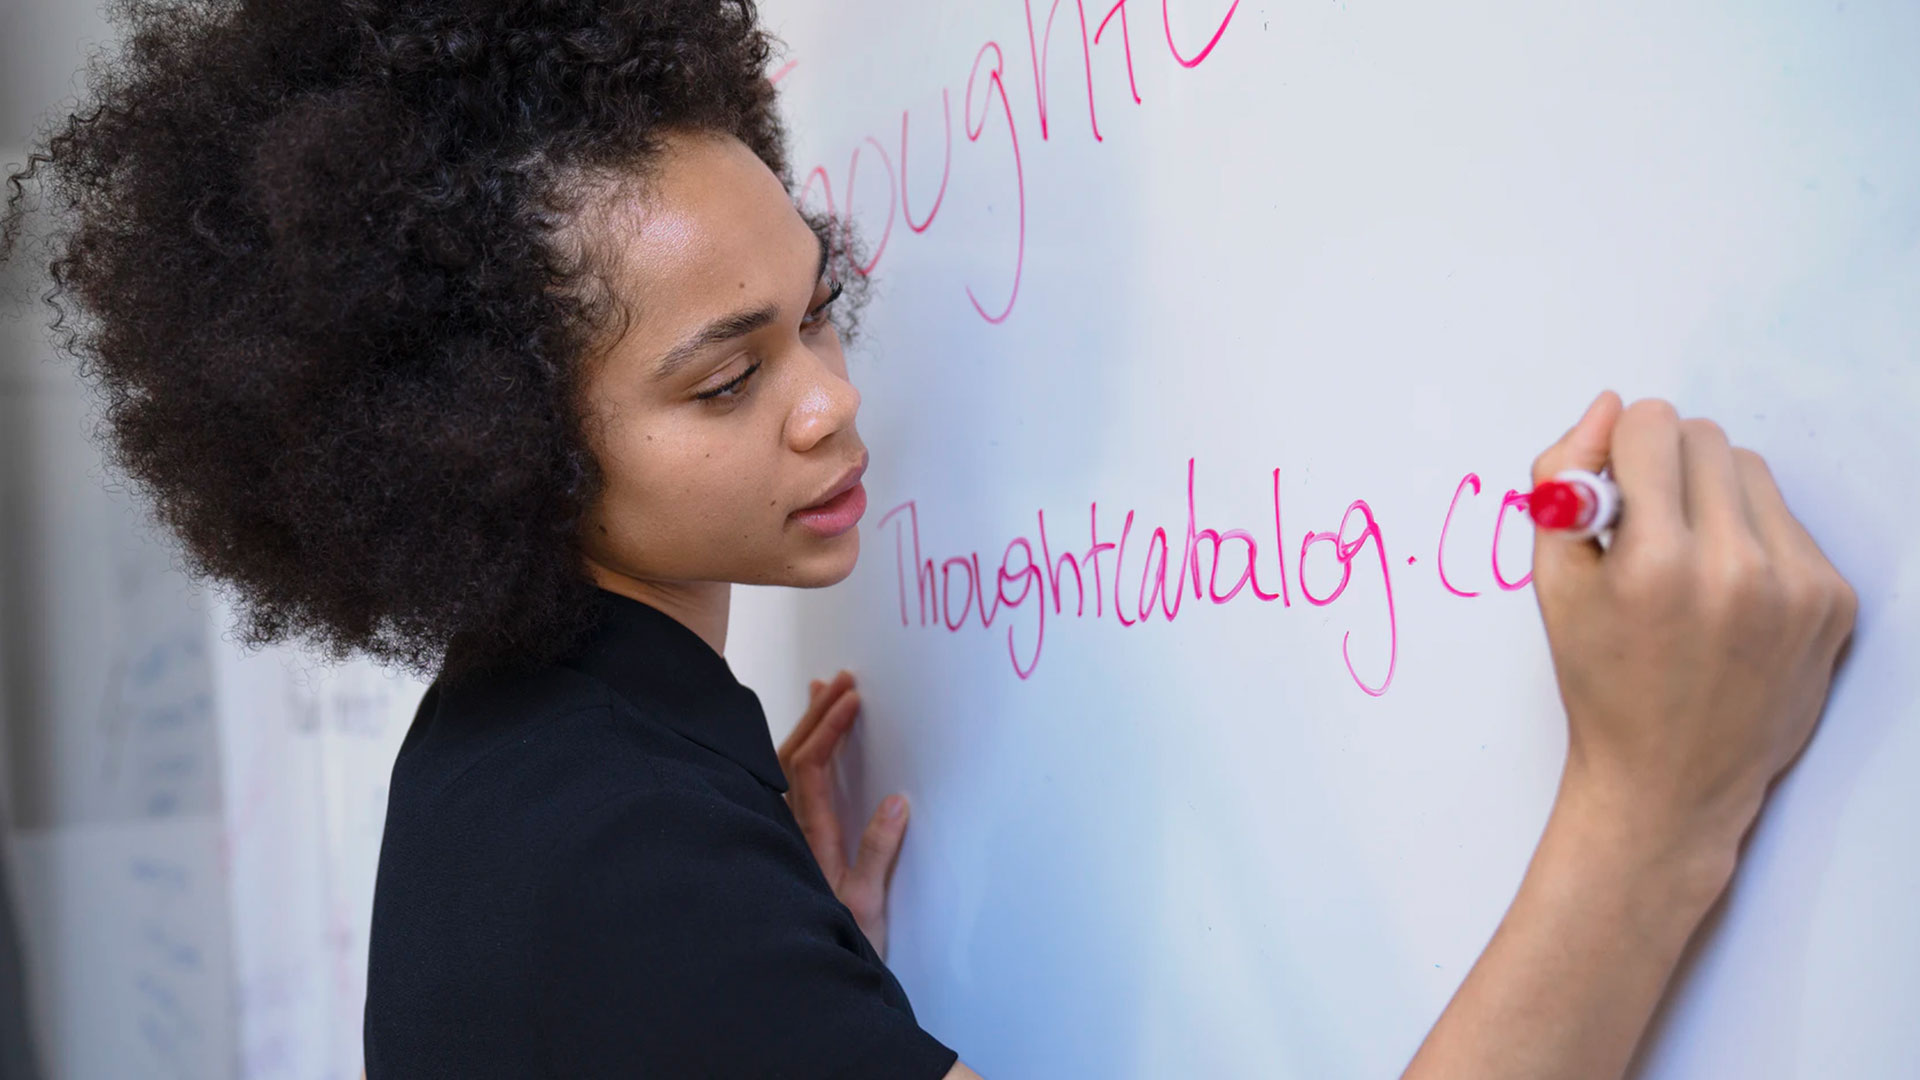 houghtc
Thoughtcatalog.co